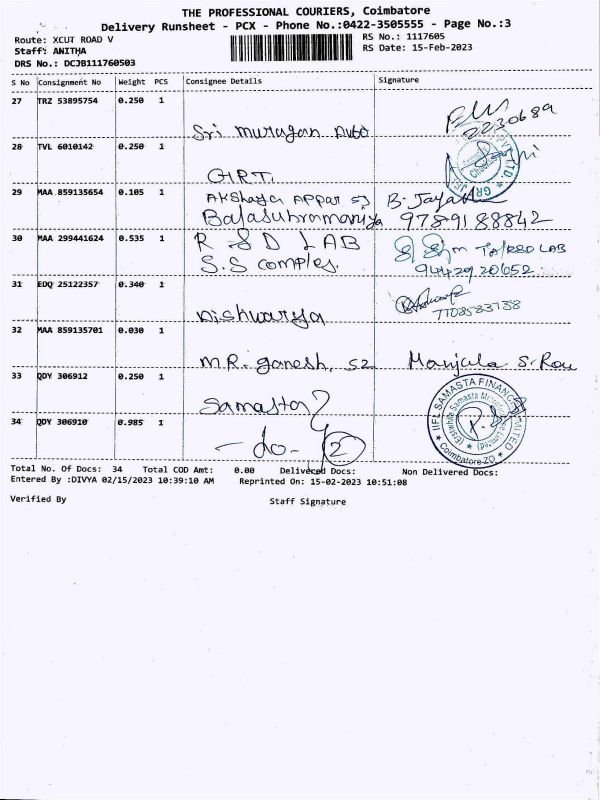 THE PROFESSIONAL COURIERS, Coimbatore
Delivery Runsheet - PCX - Phone No.:0422-3505555 - Page No.:3
Route: XCUT ROAD V
RS No.: 1117605
Staff: ANITHA
RS Date: 15-Feb-2023
DRS No.: DCJB111760503
S No Consignment No Weight PCS Consignee Details Signature
27 TRZ 53895754 0.250 1
Sri Murugan Auto 2230689
28 TVL 6010142 0.250 1
G.R.T.
29 MAA 859135654 0.105 1 Akshaya Appar
Balasubramaniya 9789188842
30 MAA 299441624 0.535 1 R S D LAB
S.S Comples. 9442920652
31 EDQ 25122357 0.340 1
Aishwarya 7708583738
32 MAA 859135701 0.030 1
M.R. ganesh, S2 Manjula S. Rau
33 QDY 306912 0.250 1
Samasta IIFL SAMASTA FINANCE LIMITED
34 QDY 306910 0.985 1
-do- 2 Coimbatore ZO
Total No. Of Docs: 34 Total COD Amt: 0.00 Delivered Docs: Non Delivered Docs:
Entered By :DIVYA 02/15/2023 10:39:10 AM Reprinted On: 15-02-2023 10:51:08
Verified By Staff Signature